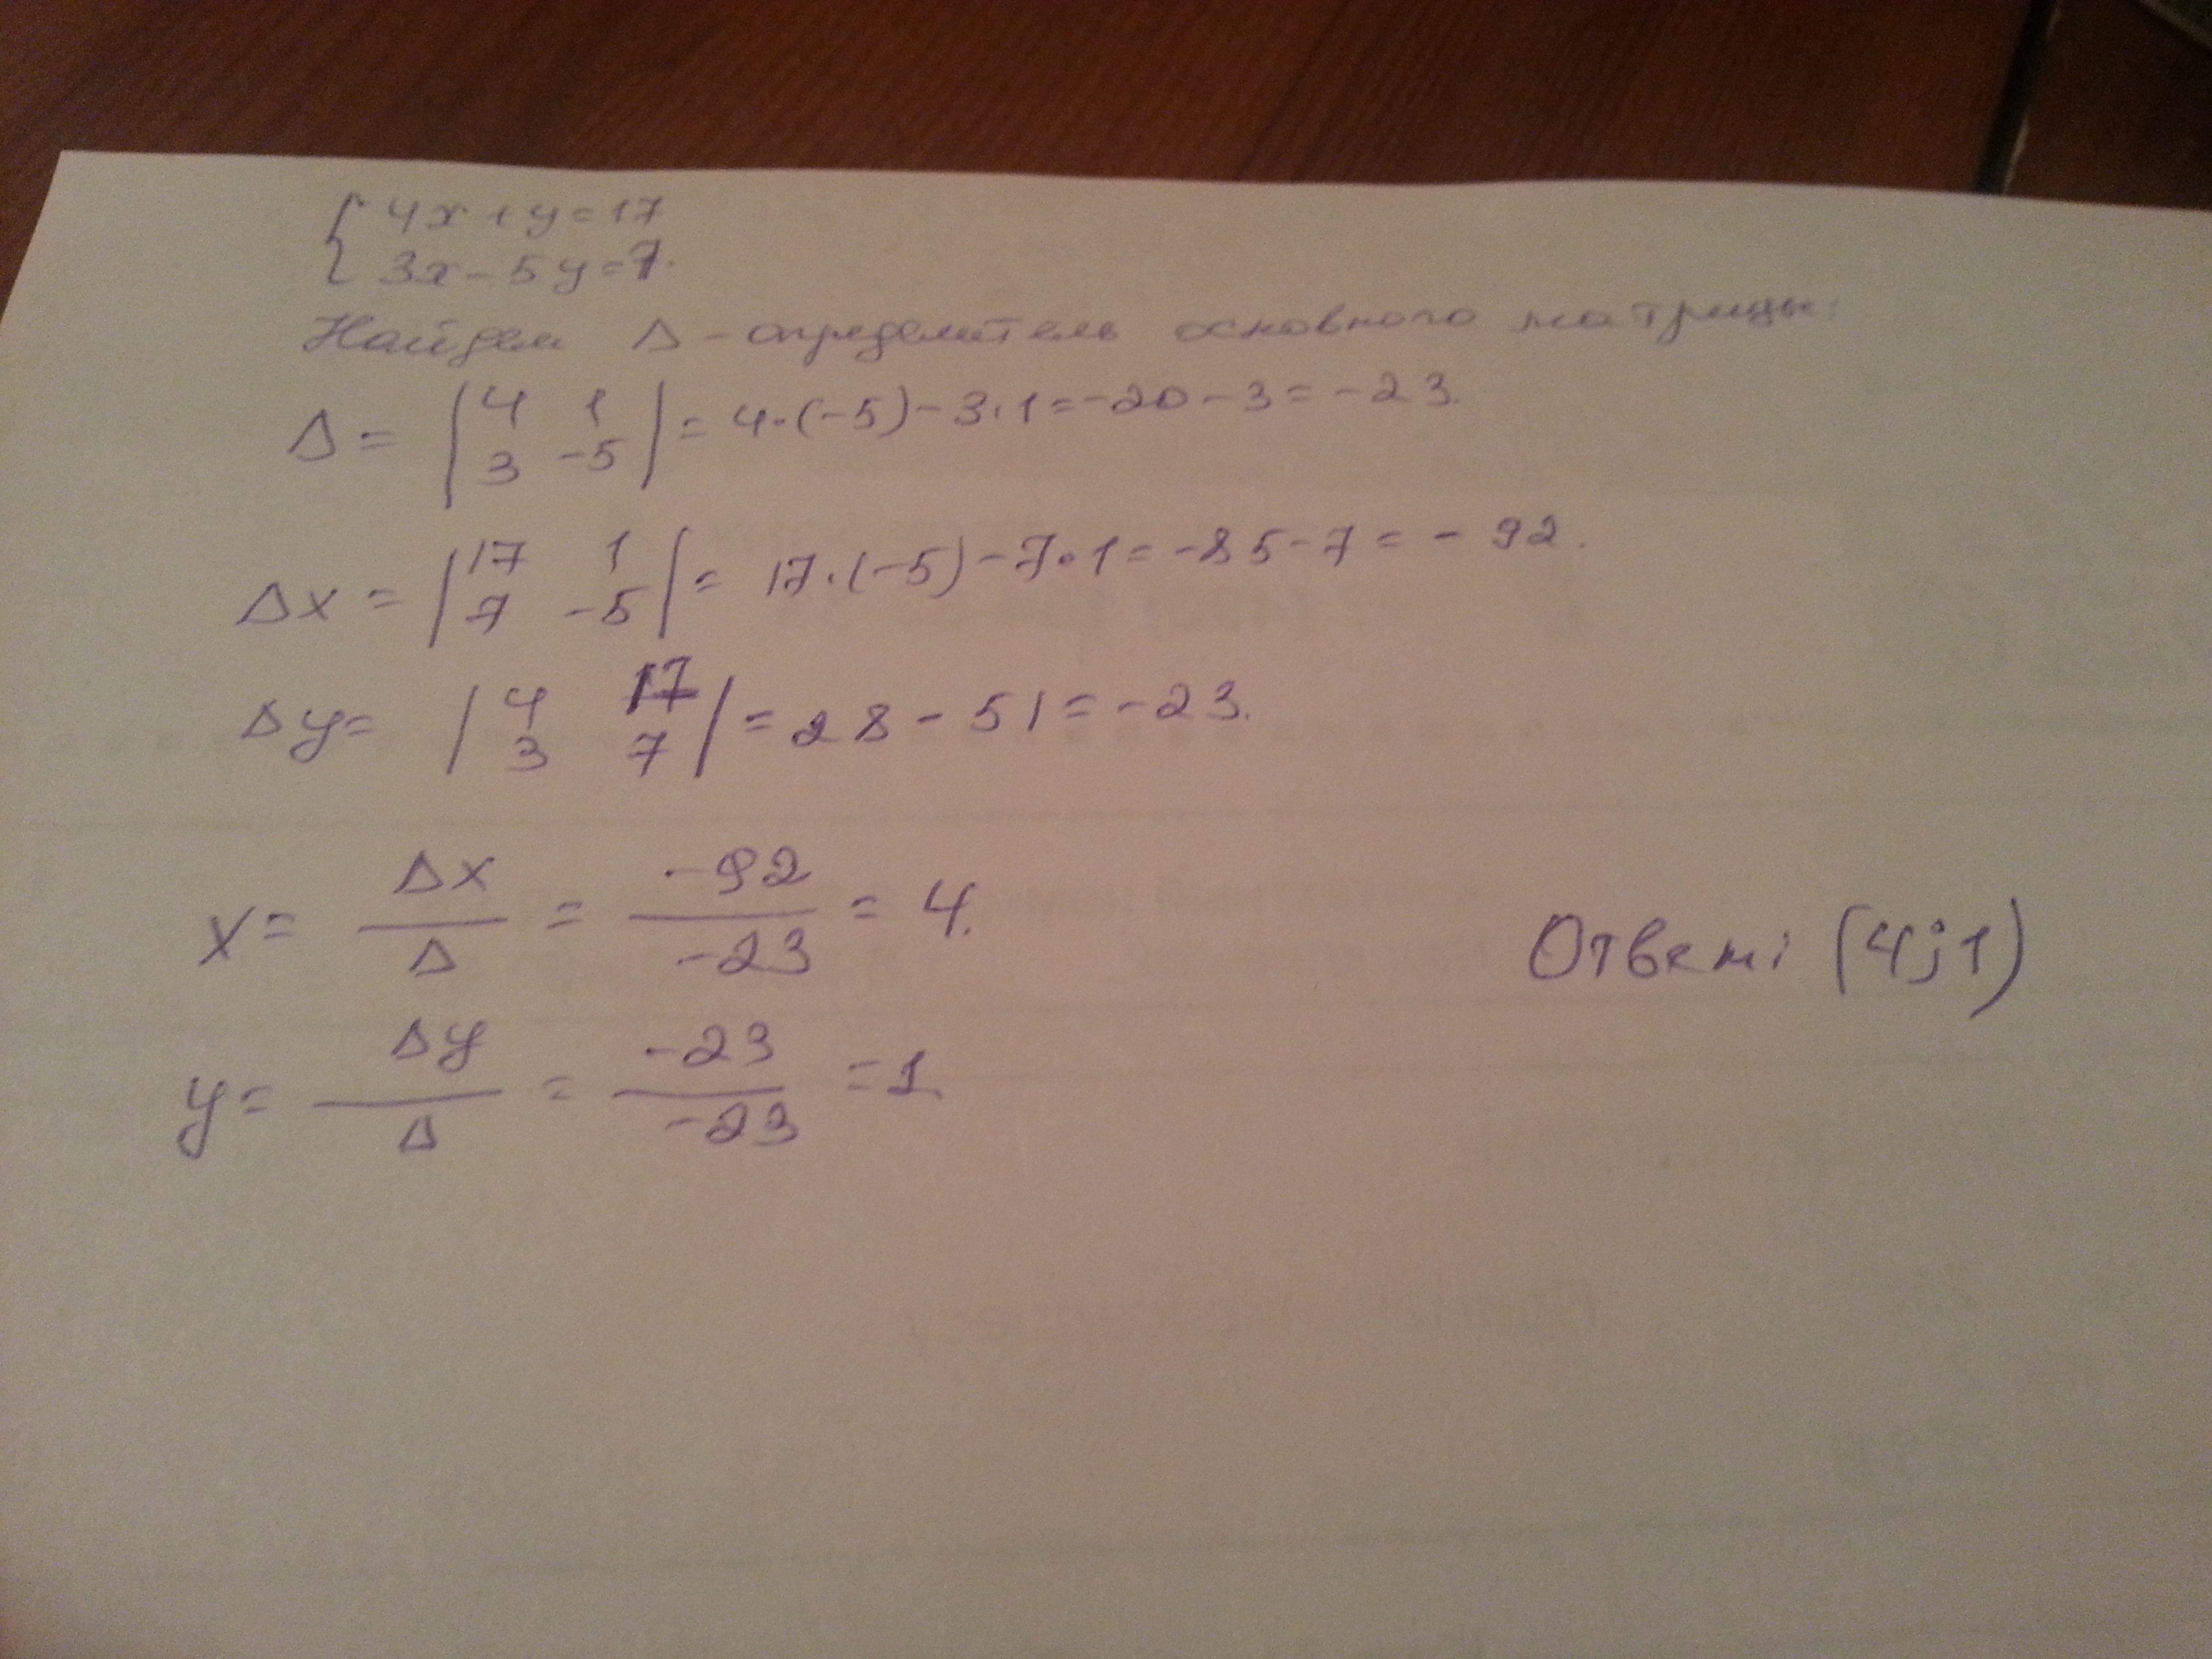 { 4x + y = 17
3x - 5y = 7.
Найдем Δ - определитель основного матрицы:
Δ = | 4 1 | = 4·(-5) - 3·1 = -20 - 3 = -23.
| 3 -5 |
Δx = | 17 1 | = 17·(-5) - 7·1 = -85 - 7 = -92.
| 7 -5 |
Δy = | 4 17 | = 28 - 51 = -23.
| 3 7 |
x = Δx/Δ = -92/-23 = 4.
Ответ: (4;1)
y = Δy/Δ = -23/-23 = 1.